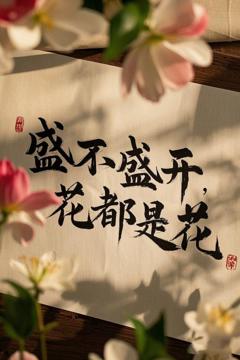 盛不盛开，
花都是花